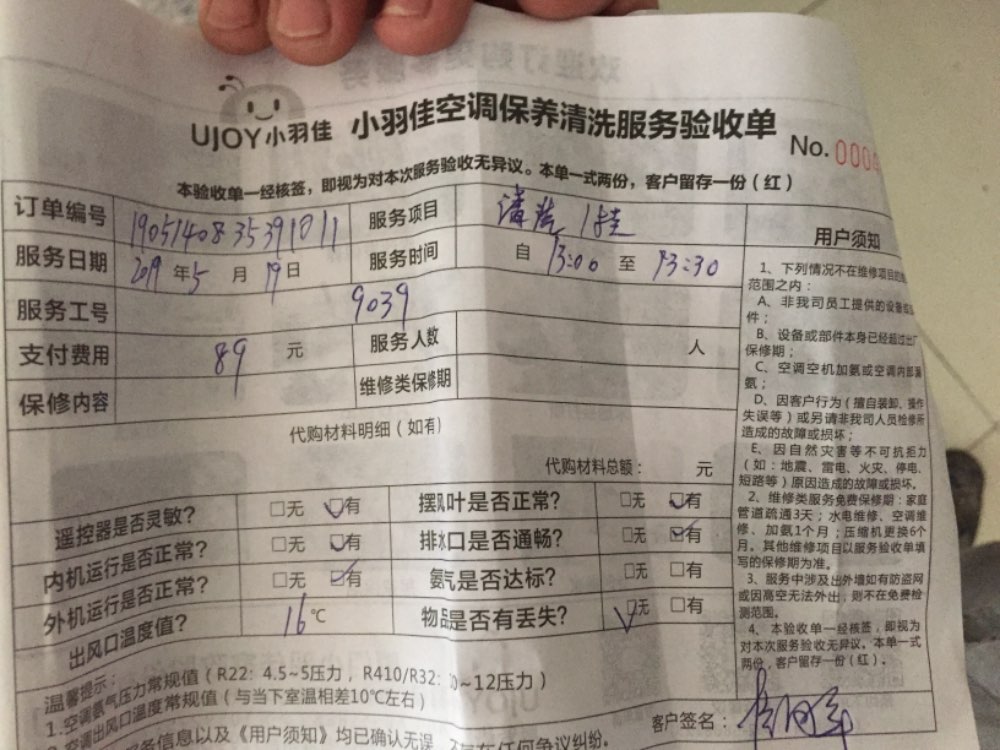 UJOY小羽佳 小羽佳空调保养清洗服务验收单
No. 0004
本验收单一经核签，即视为对本次服务验收无异议。本单一式两份，客户留存一份（红）
订单编号 服务项目 清洗1挂
服务日期 2019年5月19日 服务时间 自13:00至13:30
服务工号 9039
支付费用 89元 服务人数 人
保修内容 维修类保修期
代购材料明细（如有）
代购材料总额： 元
遥控器是否灵敏？ □无 □有 摆风叶是否正常？ □无 □有
内机运行是否正常？ □无 □有 排水口是否通畅？ □无 □有
外机运行是否正常？ □无 □有 氨气是否达标？ □无 □有
出风口温度值？ 16℃ 物品是否有丢失？ □无 □有
温馨提示：
1.空调氨气压力常规值（R22：4.5~5压力，R410/R32：10~12压力）
2.空调出风口温度常规值（与当下室温相差10℃左右）
服务信息以及《用户须知》均已确认无误 存在任何争议纠纷。
客户签名：
用户须知
1、下列情况不在维修项目的
范围之内：
A、非我司员工提供的设备或
件；
B、设备或部件本身已经超过出厂
保修期；
C、空调空机加氨或空调内部漏
氨；
D、因客户行为（擅自装卸、操作
失误等）或另请非我司人员检修所
造成的故障或损坏；
E、因自然灾害等不可抗拒力
（如：地震、雷电、火灾、停电、
短路等）原因造成的故障或损坏。
2、维修类服务免费保修期：家庭
管道疏通3天；水电维修、空调维
修、加氨1个月；压缩机更换6个
月。其他维修项目以服务验收单填
写的保修期为准。
3、服务中涉及出外墙如有防盗网
或因高空无法外出，则不在免费检
测范围。
4、本验收单一经核签，即视为
对本次服务验收无异议。本单一式
两份，客户留存一份（红）。